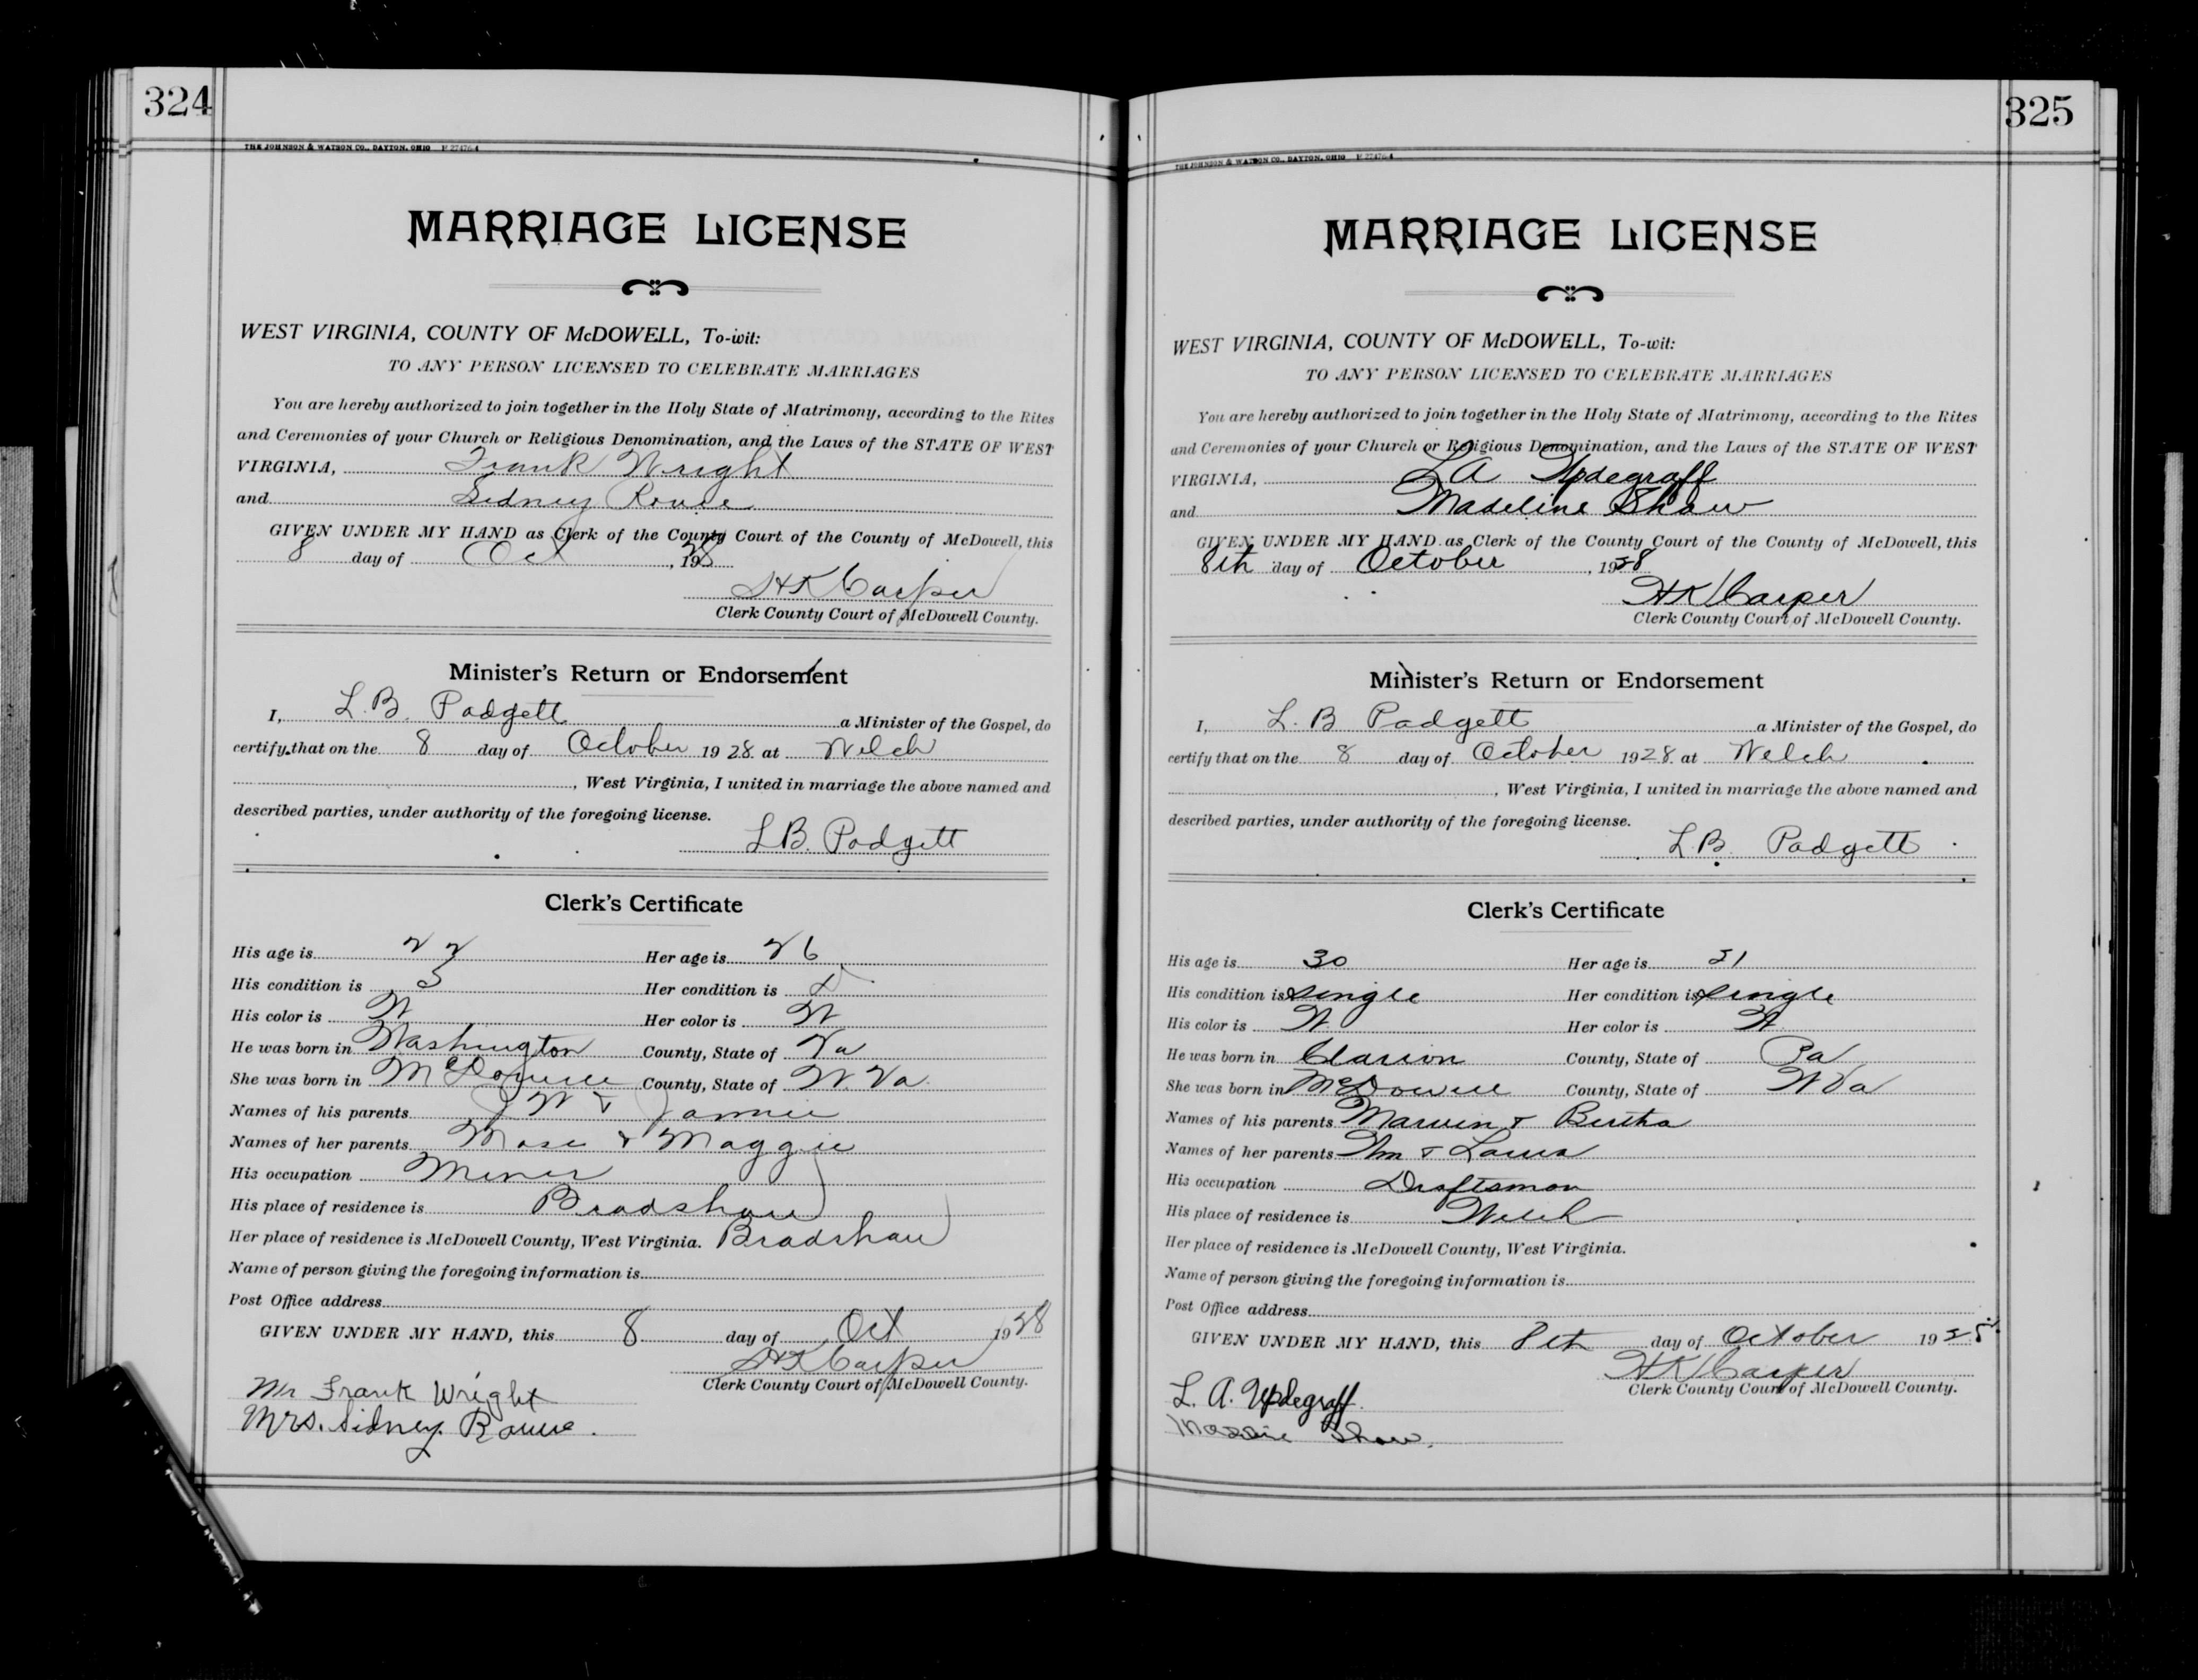 324
THE JOHNSON & WATSON CO., DAYTON, OHIO F 27476-4
MARRIAGE LICENSE
WEST VIRGINIA, COUNTY OF McDOWELL, To-wit:
TO ANY PERSON LICENSED TO CELEBRATE MARRIAGES
You are hereby authorized to join together in the Holy State of Matrimony, according to the Rites
and Ceremonies of your Church or Religious Denomination, and the Laws of the STATE OF WEST
VIRGINIA, Frank Wright
and Sidney Rowe
GIVEN UNDER MY HAND as Clerk of the County Court of the County of McDowell, this
8 day of Oct, 1928
H K Carper
Clerk County Court of McDowell County.
Minister's Return or Endorsement
I, L. B. Padgett a Minister of the Gospel, do
certify that on the 8 day of October 1928 at Welch
, West Virginia, I united in marriage the above named and
described parties, under authority of the foregoing license.
L B. Padgett
Clerk's Certificate
His age is 22 Her age is 26
His condition is S Her condition is D
His color is W Her color is W
He was born in Washington County, State of Va
She was born in McDowell County, State of W. Va.
Names of his parents J W & Jannie
Names of her parents Mose & Maggie
His occupation Miner
His place of residence is Bradshaw
Her place of residence is McDowell County, West Virginia. Bradshaw
Name of person giving the foregoing information is
Post Office address
GIVEN UNDER MY HAND, this 8 day of Oct 1928
H K Carper
Clerk County Court of McDowell County.
Mr Frank Wright
Mrs. Sidney Rowe.
325
THE JOHNSON & WATSON CO., DAYTON, OHIO F 27476-4
MARRIAGE LICENSE
WEST VIRGINIA, COUNTY OF McDOWELL, To-wit:
TO ANY PERSON LICENSED TO CELEBRATE MARRIAGES
You are hereby authorized to join together in the Holy State of Matrimony, according to the Rites
and Ceremonies of your Church or Religious Denomination, and the Laws of the STATE OF WEST
VIRGINIA, L A Updegraff
and Madeline Shaw
GIVEN UNDER MY HAND as Clerk of the County Court of the County of McDowell, this
8th day of October, 1928
H K Carper
Clerk County Court of McDowell County.
Minister's Return or Endorsement
I, L. B Padgett a Minister of the Gospel, do
certify that on the 8 day of October 1928. at Welch
, West Virginia, I united in marriage the above named and
described parties, under authority of the foregoing license.
L. B. Padgett
Clerk's Certificate
His age is 30 Her age is 21
His condition is Single Her condition is Single
His color is W. Her color is W
He was born in Clarion County, State of Pa
She was born in McDowell County, State of W Va
Names of his parents Marvin & Bertha
Names of her parents Wm & Laura
His occupation Draftsman
His place of residence is Welch
Her place of residence is McDowell County, West Virginia.
Name of person giving the foregoing information is
Post Office address
GIVEN UNDER MY HAND, this 8th day of October 1928.
H K Carper
Clerk County Court of McDowell County.
L. A. Updegraff.
Shaw.